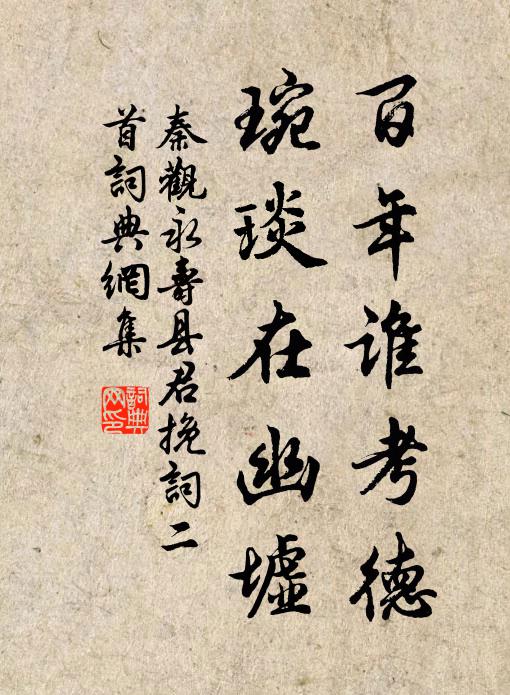 百年谁考德
琬琰在幽墟
秦觀永壽县君挽詞二
首詞典網集
詞典
网印